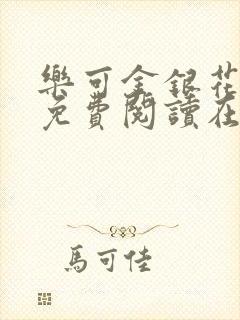 樂可金銀花
免費閱讀在
馬可佳